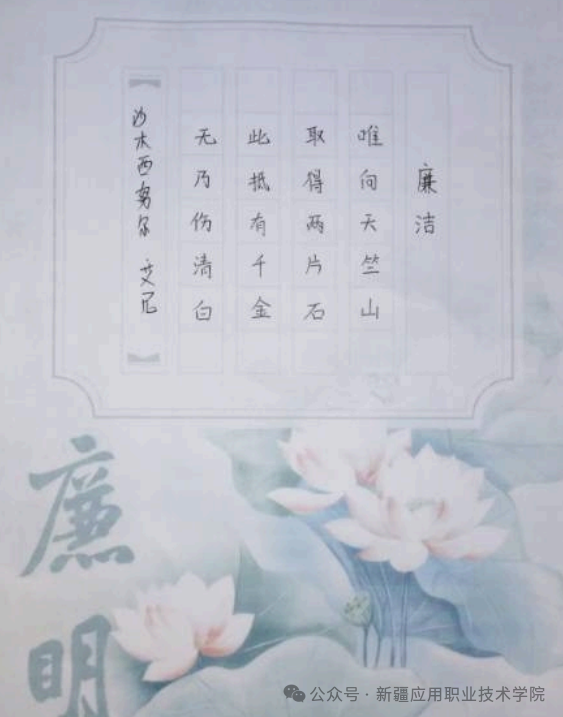 廉洁
唯向天竺山
取得两片石
此抵有千金
无乃伤清白
沙木西努尔 艾尼
廉明
公众号·新疆应用职业技术学院